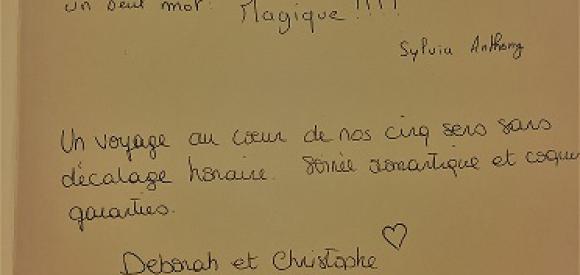 un seul mot : Magique !!!!
Sylvia Anthony
Un voyage au cœur de nos cinq sens sans
décalage horaire. Soirée romantique et coquine
garanties.
Deborah et Christophe ♡